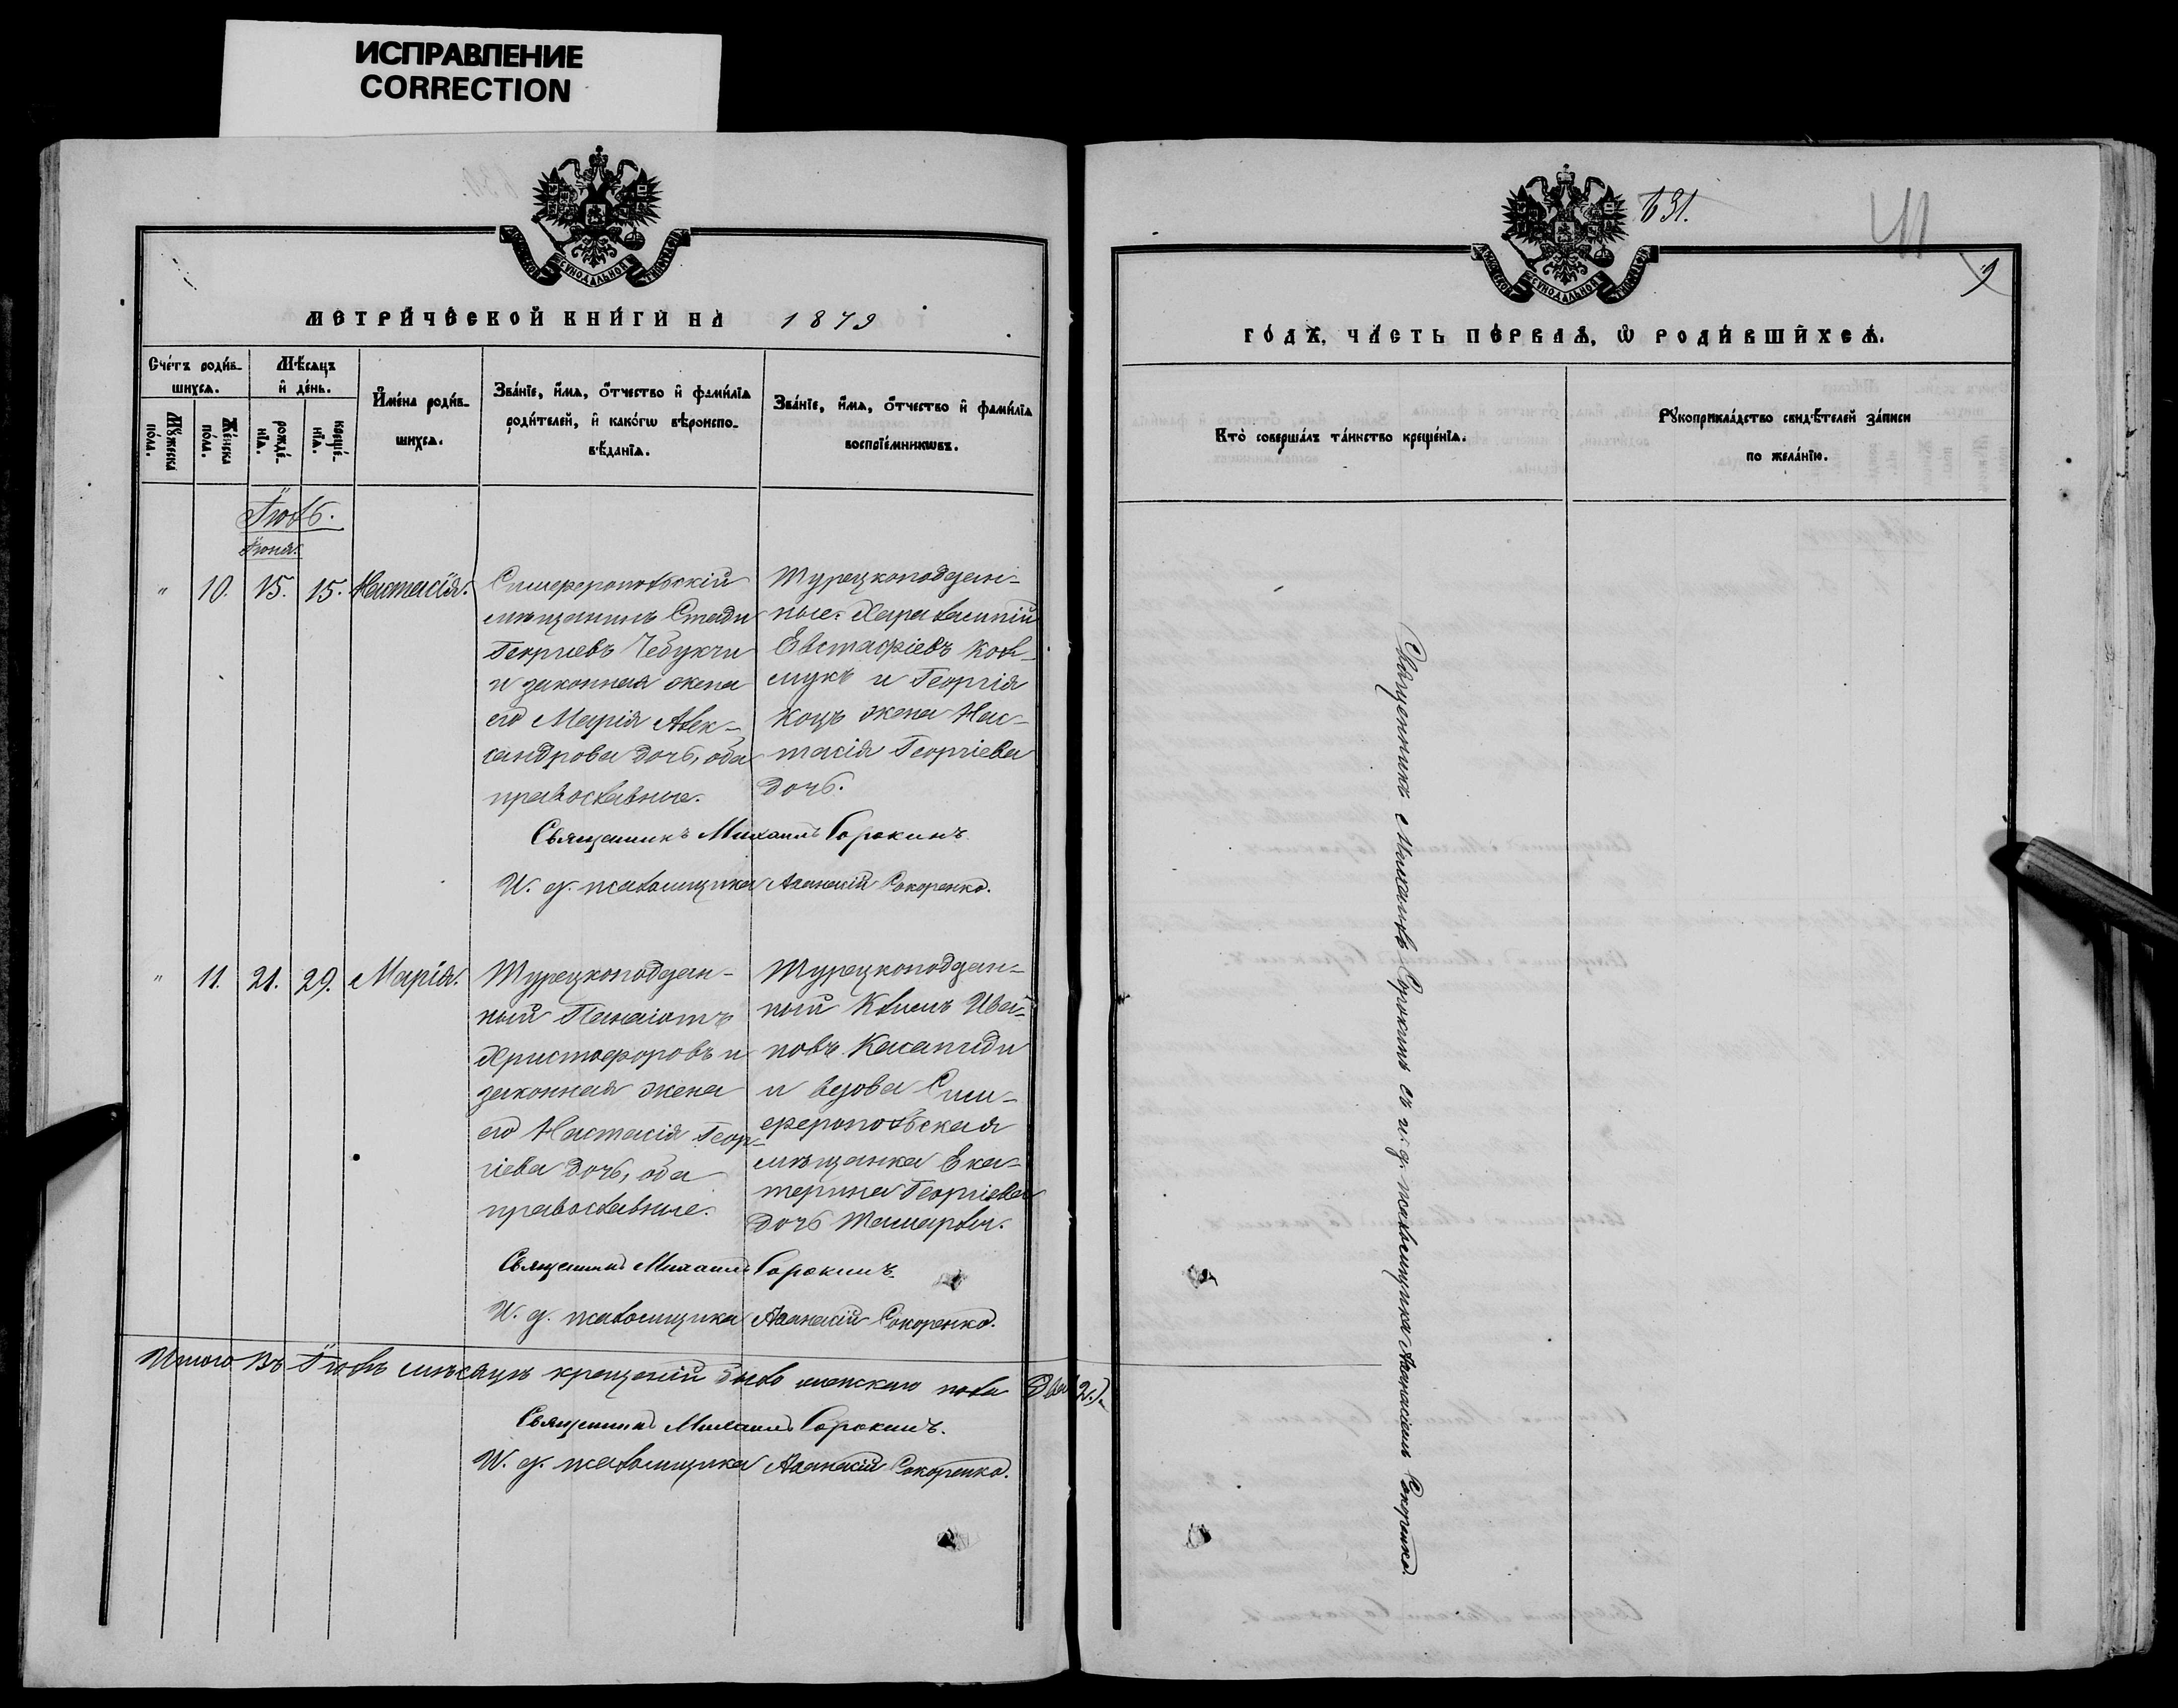 ИСПРАВЛЕНИЕ
CORRECTION
МЕТРИЧЕСКОЙ КНИГИ НА 1879
Счетъ родив-
шихся.
Мѣсяцъ
и день.
Имена родив-
шихся.
Званіе, имя, отчество и фамилія
родителей, и какогѡ вѣроиспо-
вѣданія.
Званіе, имя, отчество и фамилія
воспріемникѡвъ.
Мужеска
пола.
Женска
пола.
рожде-
нія.
креще-
нія.
Іюль.
Іюня.
" 10. 15. 15. Настасія.
Симферопольскій
мѣщанинъ Стади
Георгіевъ Чебукчи
и законная жена
его Марія Алек-
сандрова дочь, оба
православные.
Турецкоподдан-
ные: Харалампій
Евстафіевъ Кол-
мукъ и Георгія
Коцъ жена Нас-
тасія Георгіева
дочь.
Священникъ Михаилъ Сорокинъ
И. д. псаломщика Аѳанасій Сокоренко.
" 11. 21. 29. Марія.
Турецкоподдан-
ный Панаіотъ
Христофоровъ и
законная жена
его Настасія Геор-
гіева дочь, оба
православные.
Турецкоподдан-
ный Климъ Ива-
новъ Касапиди
и вдова Сим-
феропольская
мѣщанка Ека-
терина Георгіева
дочь
Священникъ Михаилъ Сорокинъ.
И. д. псаломщика Аѳанасій Сокоренко.
Итого въ Іюлѣ мѣсяцѣ крещеній было женскаго пола Два (2.).
Священникъ Михаилъ Сорокинъ.
И. д. псаломщика Аѳанасій Сокоренко.
631.
41
9
ГОДЪ, ЧАСТЬ ПЕРВАЯ, Ѡ РОДИВШИХСЯ.
Кто совершалъ таинство крещенія.
Рукоприкладство свидѣтелей записи
по желанію.
Священникъ Михаилъ Сорокинъ съ и. д. псаломщика Аѳанасіемъ Сокоренко.